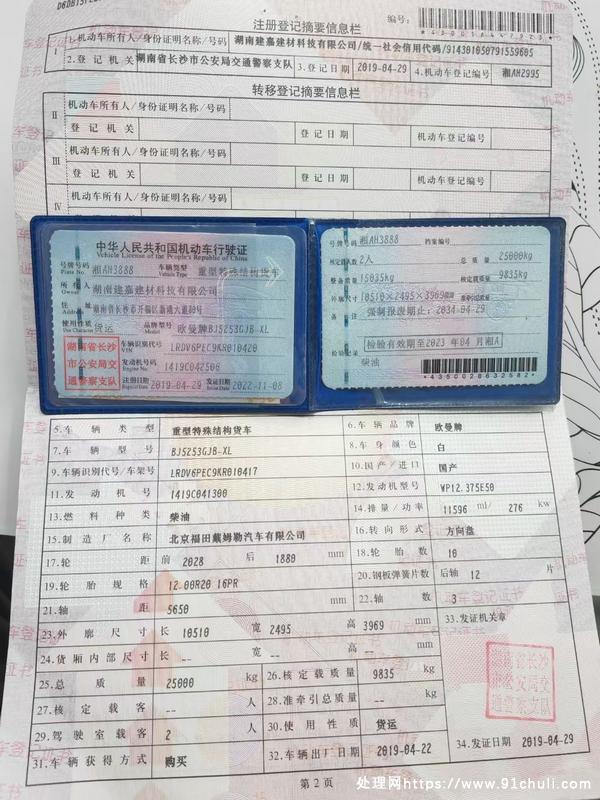 注册登记摘要信息栏
编号:
*430016447923*
1.机动车所有人/身份证明名称/号码 湖南建嘉建材科技有限公司/统一社会信用代码/914301050791559605
2.登记机关 湖南省长沙市公安局交通警察支队 3.登记日期 2019-04-29 4.机动车登记编号 湘AHZ995
转移登记摘要信息栏
II 机动车所有人/身份证明名称/号码
登记机关 登记日期 机动车登记编号
III 机动车所有人/身份证明名称/号码
登记机关 登记日期 机动车登记编号
IV 机动车所有人/身份证明名称/号码
中华人民共和国机动车行驶证
Vehicle License of the People's Republic of China
号牌号码 湘AH3888 车辆类型 重型特殊结构货车
Plate No. Vehicle Type
所有人 湖南建嘉建材科技有限公司
Owner
住址
Address
使用性质 货运 品牌型号 欧曼牌BJ5253GJB-XL
Use Character Model
湖南省长沙市公安局交通警察支队
车辆识别代号 LRDV6PEC9KR010420
VIN
发动机号码 1419C042506
Engine No.
注册日期 2019-04-29 发证日期 2022-11-08
Register Date Issue Date
号牌号码 湘AH3888 档案编号
核定载人数 2人 总质量 25000kg
整备质量 15035kg 核定载质量 9835kg
外廓尺寸 10510×2495×3969mm
备注 强制报废期止:2034-04-29
检验有效期至2023年04月湘A
检验记录
柴油
*4350028632582*
5.车辆类型 重型特殊结构货车 6.车辆品牌 欧曼牌
7.车辆型号 BJ5253GJB-XL 8.车身颜色 白
9.车辆识别代号/车架号 LRDV6PEC9KR010417 10.国产/进口 国产
11.发动机号 1419C041300 12.发动机型号 WP12.375E50
13.燃料种类 柴油 14.排量/功率 11596 ml/ 276 kw
15.制造厂名称 北京福田戴姆勒汽车有限公司 16.转向形式 方向盘
17.轮距 前 2028 后 1880 mm 18.轮胎数 10
19.轮胎规格 12.00R20 16PR 20.钢板弹簧片数 后轴 12 片
21.轴距 5650 mm 22.轴数 3
23.外廓尺寸 长 10510 宽 2495 高 3969 mm 33.发证机关章
24.货厢内部尺寸 长 -- 宽 -- 高 -- mm
湖南省长沙市公安局交通警察支队
25.总质量 25000 kg 26.核定载质量 9835 kg
27.核定载客 -- 人 28.准牵引总质量 -- kg
29.驾驶室载客 2 人 30.使用性质 货运
31.车辆获得方式 购买 32.车辆出厂日期 2019-04-22 34.发证日期 2019-04-29
第2页
处理网https://www.91chuli.com/